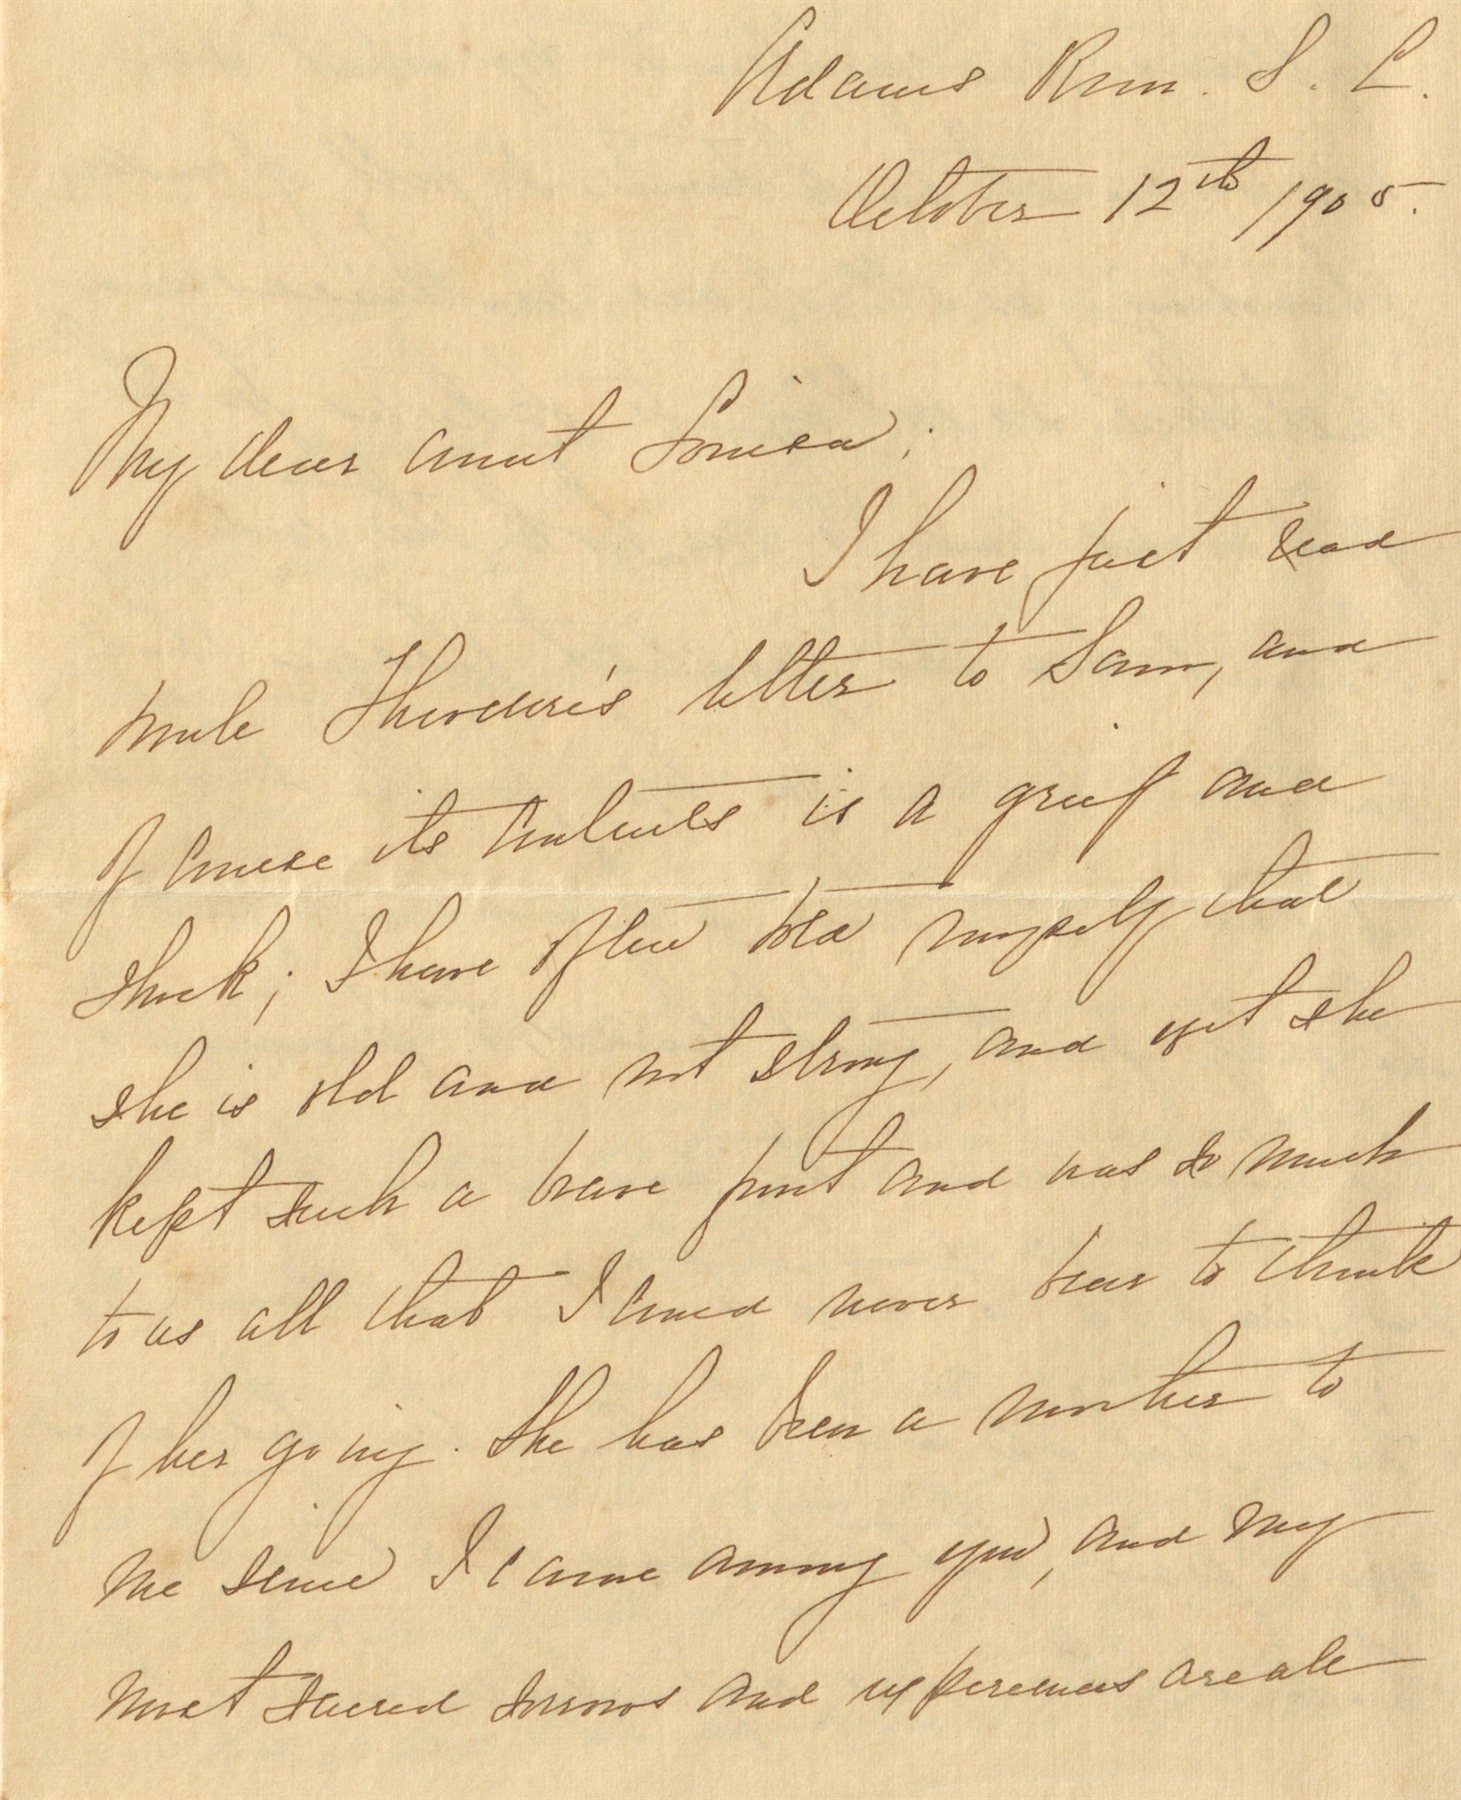 Adams Run. S. C.
October 12th 1905.
My dear Aunt Louisa;
I have just read
Uncle Theodore's letter to Sam, and
of course its contents is a grief and
shock; I have often told myself that
she is old and not strong, and yet she
kept such a brave front and was so much
to us all that I could never bear to think
of her going. She has been a mother to
me since I came among you, and my
most sacred sorrows and experiences are all